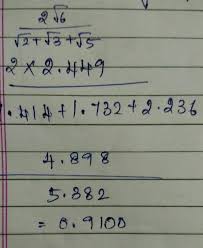 2√6
√2+√3+√5
2 × 2.449
1.414+1.732+2.236
4.898
5.382
= 0.9100